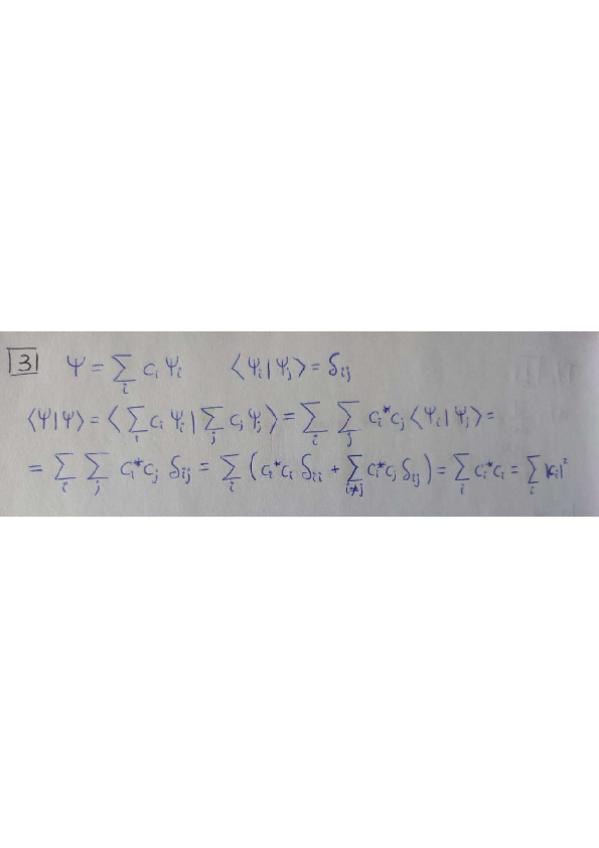 3 Ψ = ∑_i c_i Ψ_i ⟨Ψ_i|Ψ_j⟩ = δ_ij
⟨Ψ|Ψ⟩ = ⟨∑_i c_i Ψ_i | ∑_j c_j Ψ_j⟩ = ∑_i ∑_j c_i* c_j ⟨Ψ_i|Ψ_j⟩ =
= ∑_i ∑_j c_i* c_j δ_ij = ∑_i (c_i* c_i δ_ii + ∑_{i≠j} c_i* c_j δ_ij) = ∑_i c_i* c_i = ∑_i |c_i|²